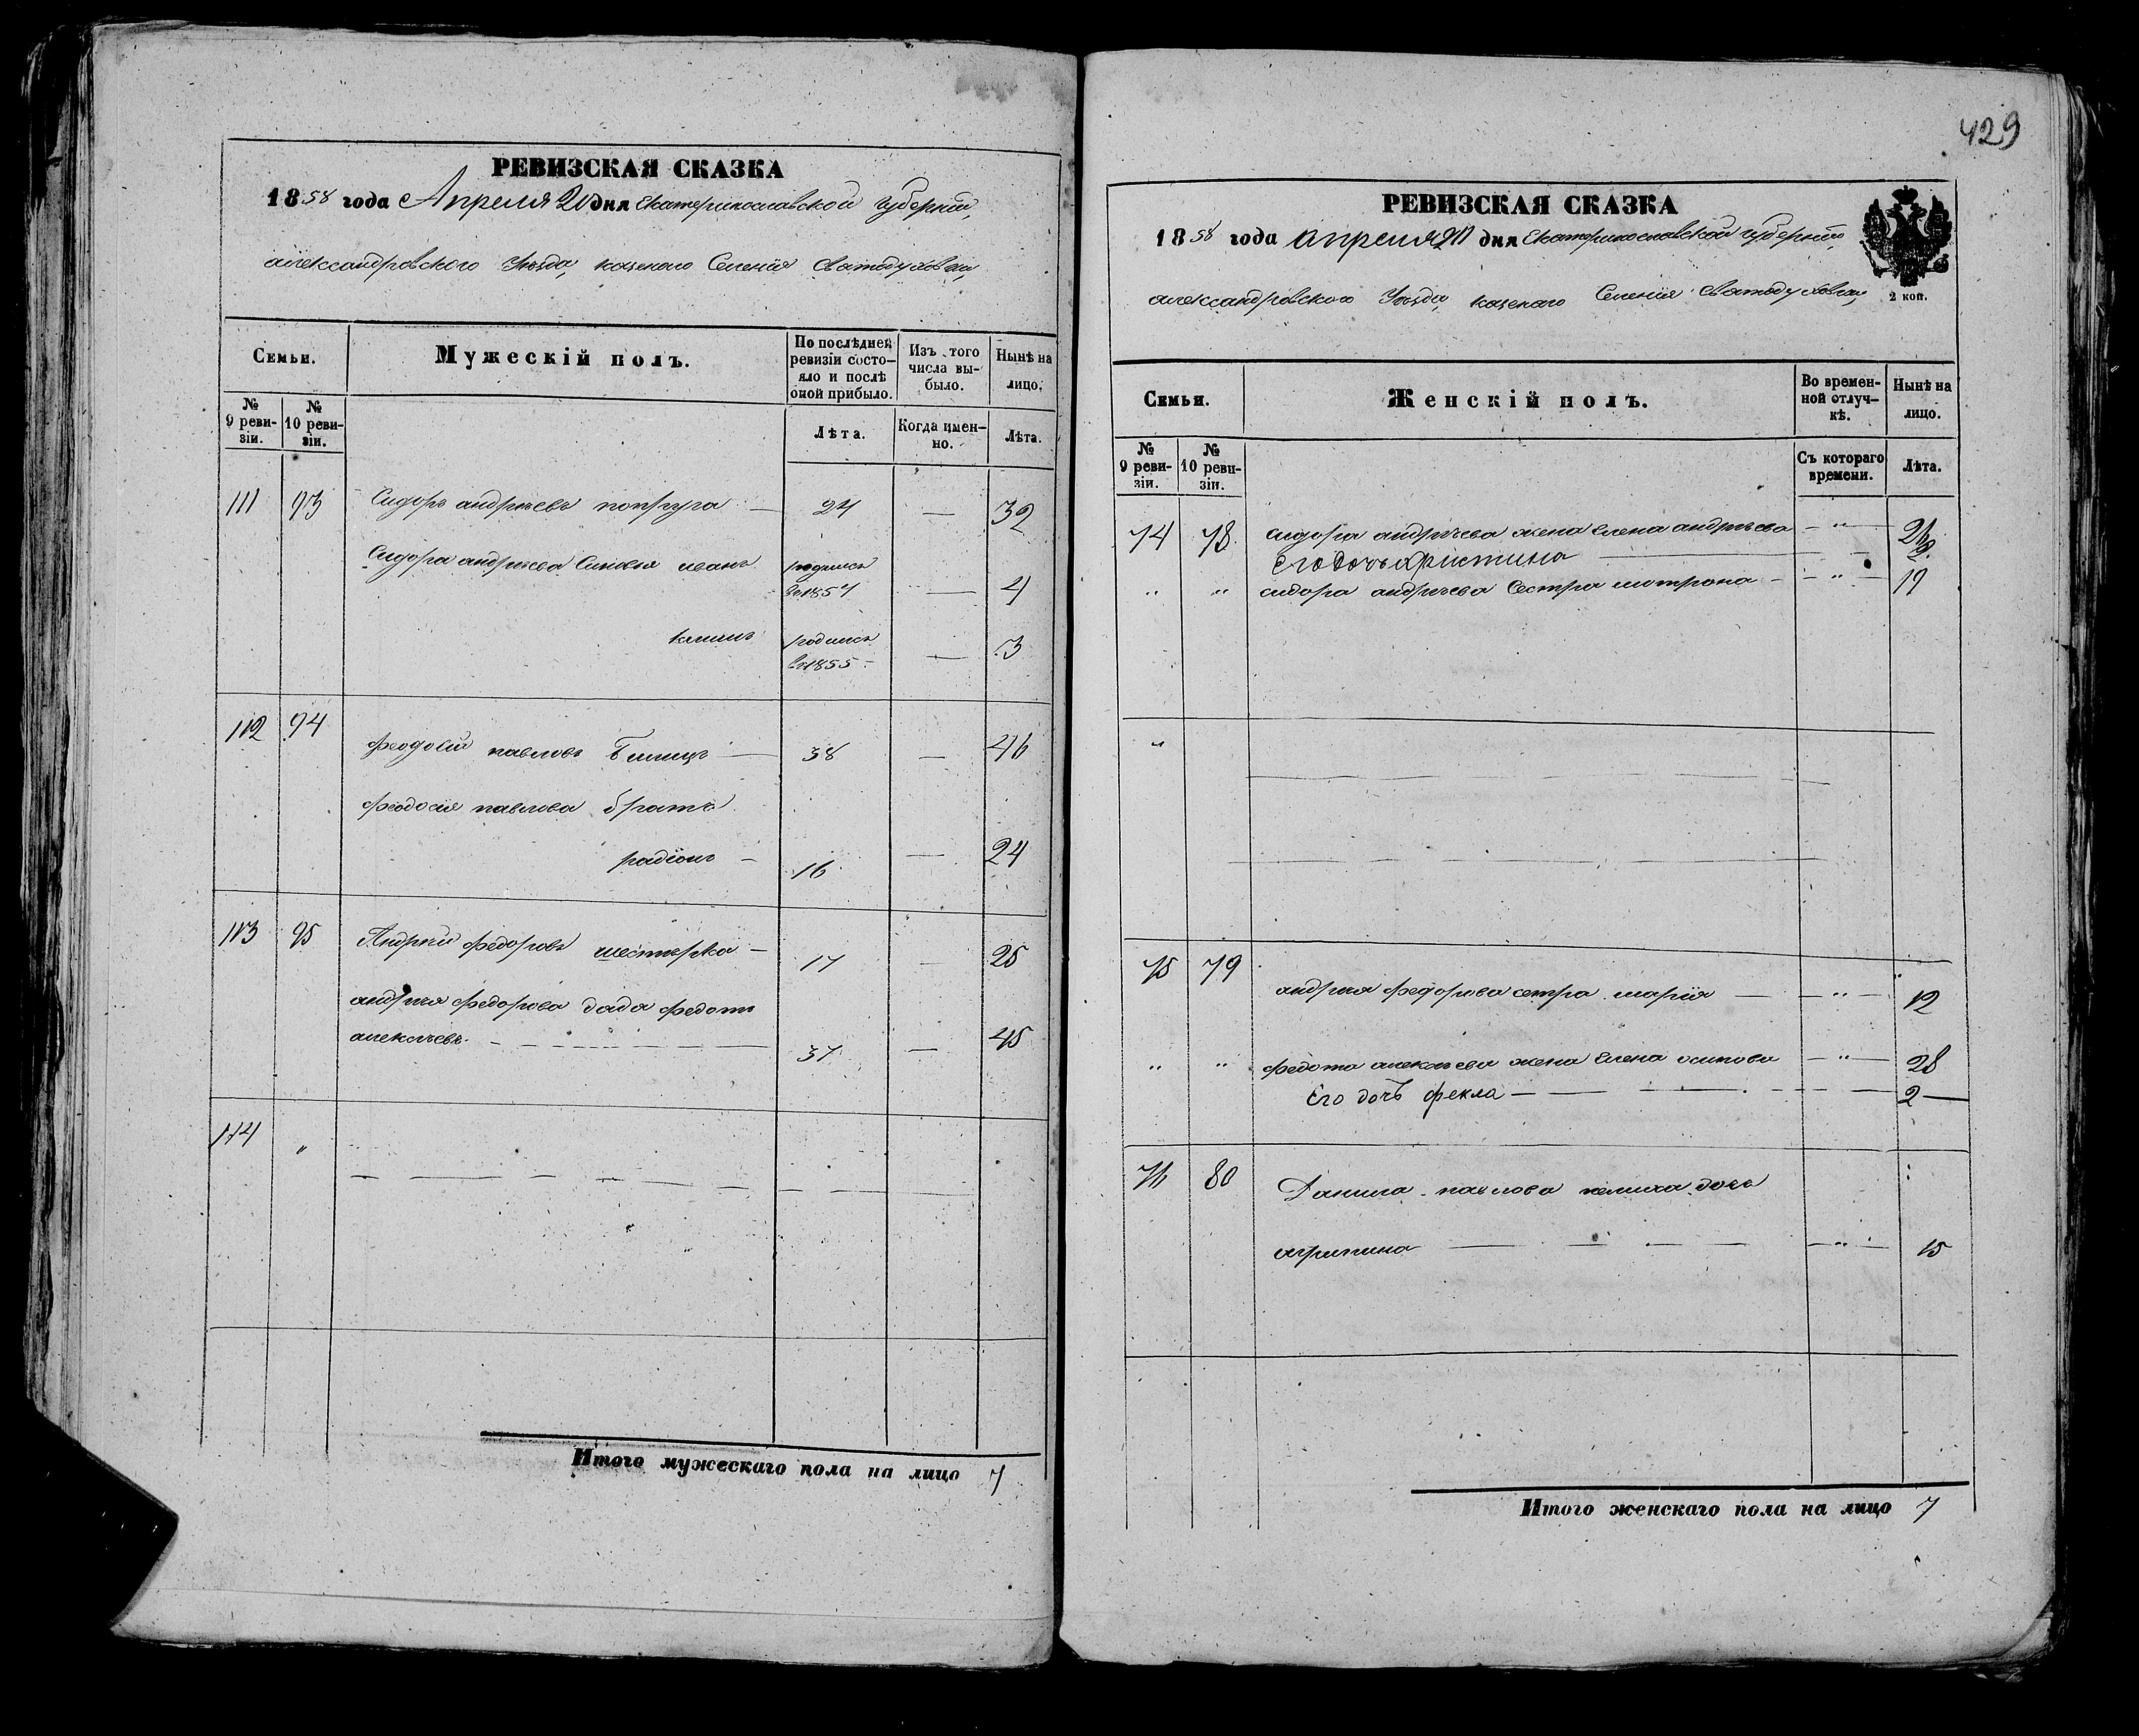 РЕВИЗСКАЯ СКАЗКА
1858 года Апреля 20 дня Екатеринославской губерніи,
александровского Уѣзда, казенаго Селенія Святодуховки,
Семьи.
Мужескій полъ.
По послѣдней ревизіи состо-
яло и послѣ
оной прибыло.
Изъ того
числа вы-
было.
Нынѣ на
лицо.
№
9 реви-
зіи.
№
10 реви-
зіи.
Лѣта.
Когда имен-
но.
Лѣта.
111 93 Сидоръ андреевъ попруга — 24 — 32
Сидора андреева Сыновья иванъ родился
въ 1854 — 4
климъ родился
въ 1855 — 3
112 94 Феодосій павловъ — 38 — 46
Феодосія павлова братъ
радіонъ — 16 — 24
113 95 Андрей федоровъ шестерка — 17 — 25
андрея федорова дядя федотъ
алексеевъ — 37 — 45
114 "
Итого мужескаго пола на лицо 7
429
РЕВИЗСКАЯ СКАЗКА
1858 года апреля 20 дня Екатеринославской губерніи
александровского Уѣзда, казенаго Селенія Святодуховки,
2 коп.
Семьи.
Женскій полъ.
Во времен-
ной отлуч-
кѣ.
Нынѣ на
лицо.
№
9 реви-
зіи.
№
10 реви-
зіи.
Съ котораго
времени.
Лѣта.
74 78 сидора андреева жена елена андреева — " — 26
Его дочь христина — 2.
" " сидора андреева Сестра мотрона — " — 19
"
75 79 андрея федорова сетра марія — " — 12
" " федота алексеева жена Елена осипова — " — 28
Его дочъ фекла — 2 —
76 80 Данила павлова дочь
агрипина — " — 15
Итого женскаго пола на лицо 7